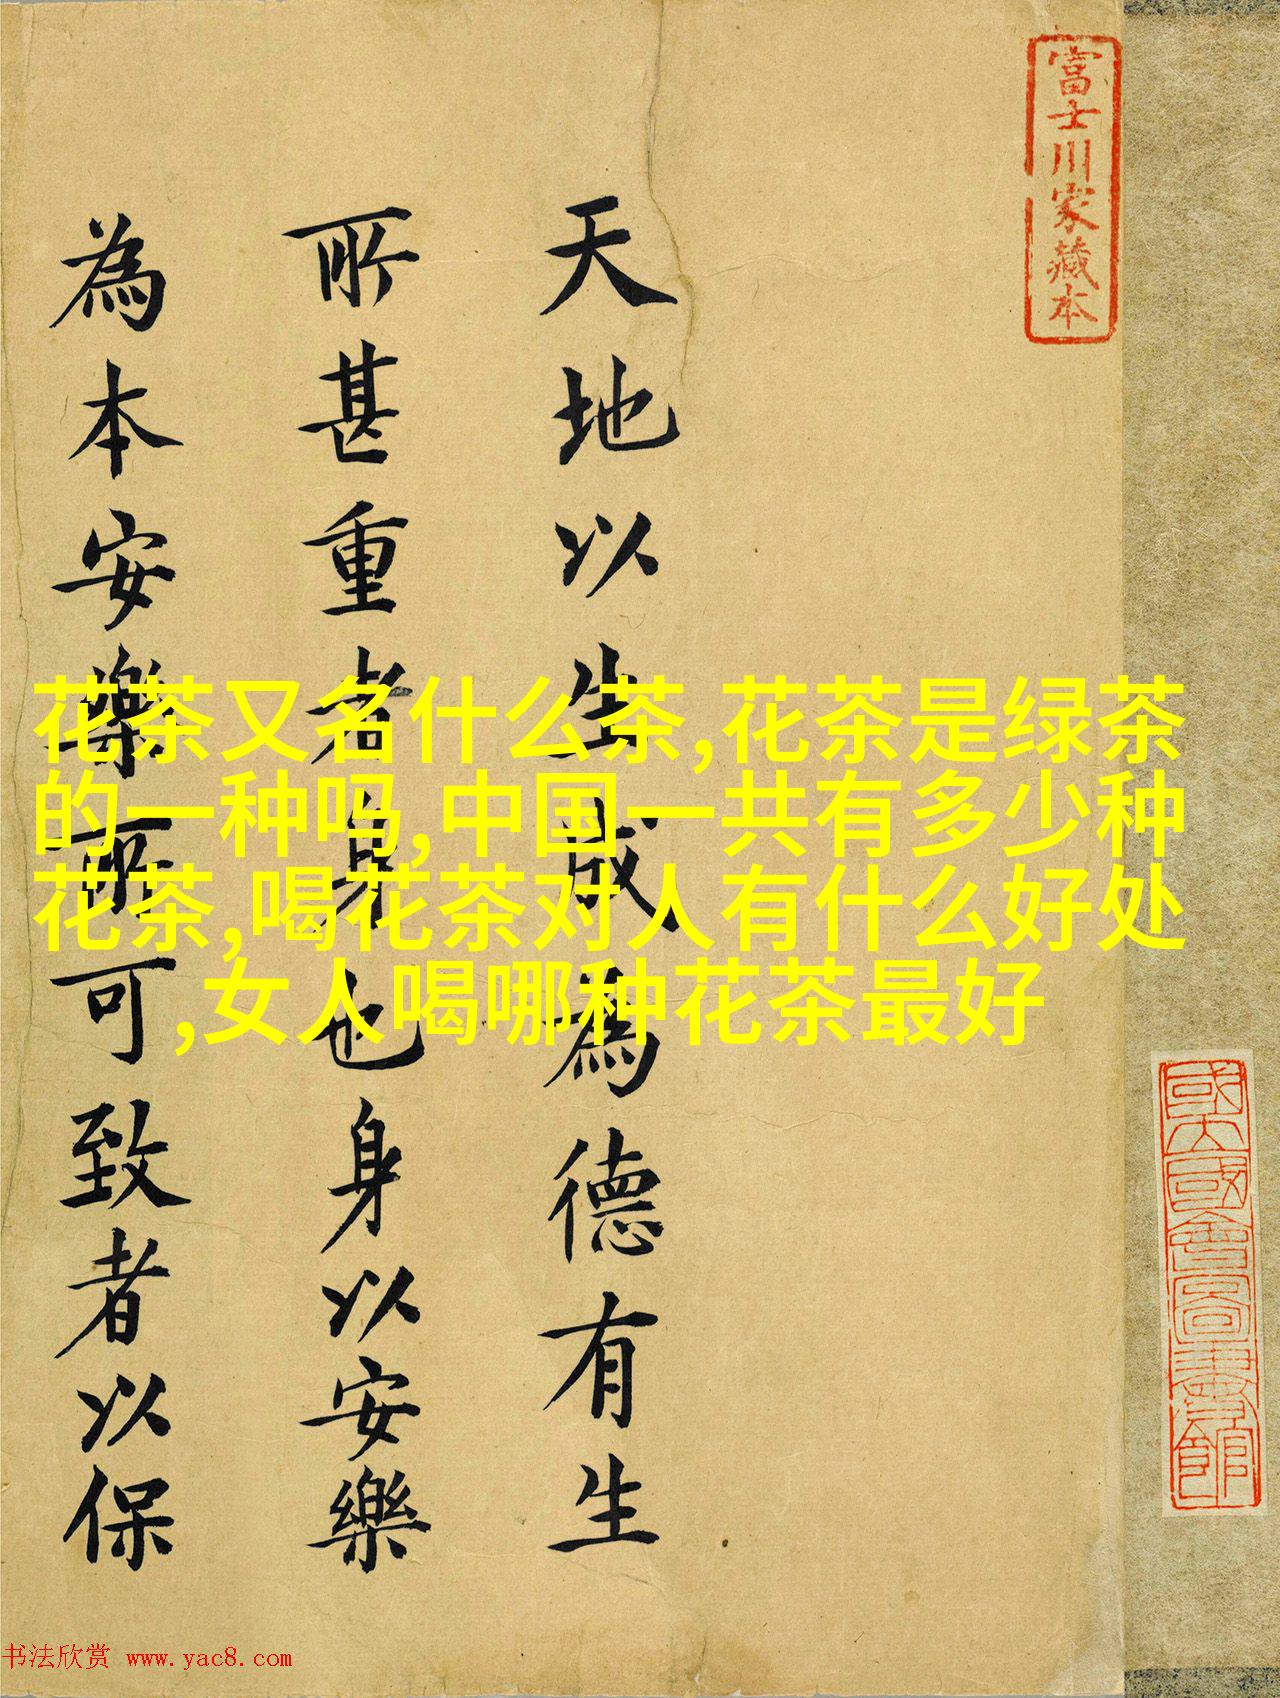 天地以生成為德有生
所甚重者身也身以安樂
為本安樂所可致者以保
富士川家藏本
花茶又名什么茶,花茶是绿茶
的一种吗,中国一共有多少种
花茶,喝花茶对人有什么好处
,女人喝哪种花茶最好
国立国会图书馆
书法欣赏 www.yac8.com